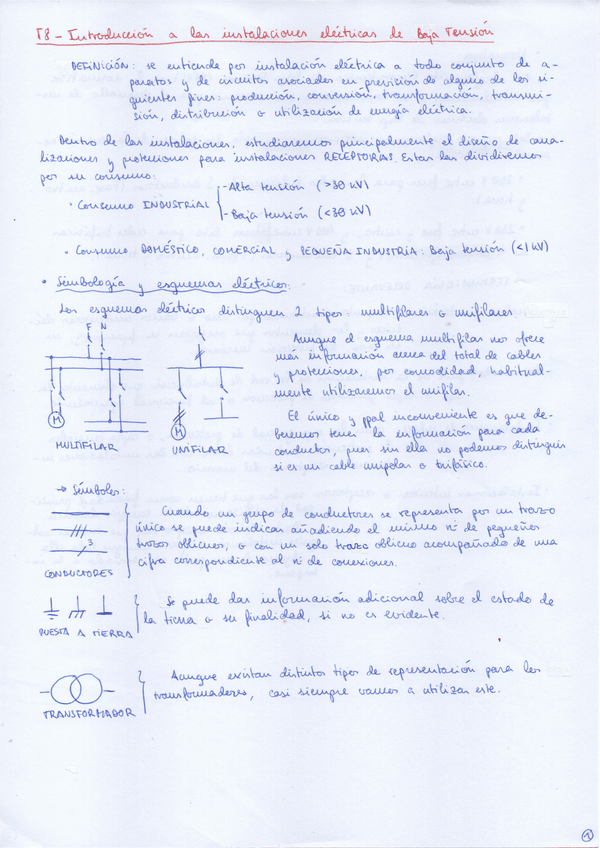 T8 - Introducción a las instalaciones eléctricas de Baja Tensión
DEFINICIÓN: se entiende por instalación eléctrica a todo conjunto de a-
paratos y de circuitos asociados en previsión de alguno de los si-
guientes fines: producción, conversión, transformación, transmi-
sión, distribución o utilización de energía eléctrica.
Dentro de las instalaciones, estudiaremos principalmente el diseño de cana-
lizaciones y protecciones para instalaciones RECEPTORAS. Estas las dividiremos
por su consumo:
· Consumo INDUSTRIAL
- Alta tensión (>30 kV)
- Baja tensión (<30 kV)
· Consumo DOMÉSTICO, COMERCIAL y PEQUEÑA INDUSTRIA: Baja tensión (<1 kV)
• Simbología y esquemas eléctricos:
Los esquemas eléctricos distinguen 2 tipos: multifilares o unifilares
F N
M
MULTIFILAR
M
UNIFILAR
Aunque el esquema multifilar nos ofrece
más información acerca del total de cables
y protecciones, por comodidad, habitual-
mente utilizaremos el unifilar.
El único y ppal inconveniente es que de-
beremos tener la información para cada
conductor, pues sin ella no podemos distinguir
si es un cable unipolar o trifásico.
→ Símbolos:
3
CONDUCTORES
Cuando un grupo de conductores se representa por un trazo
único se puede indicar añadiendo el mismo nº de pequeños
trazos oblicuos, o con un solo trazo oblicuo acompañado de una
cifra correspondiente al nº de conexiones.
PUESTA A TIERRA
Se puede dar información adicional sobre el estado de
la tierra o su finalidad, si no es evidente.
TRANSFORMADOR
Aunque existan distintos tipos de representación para los
transformadores, casi siempre vamos a utilizar este.
1